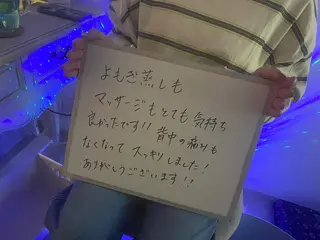 よもぎ蒸しも
マッサージもとても気持ち
良かったです!! 背中の痛みも
なくなってスッキリしました!
ありがとうございます!!